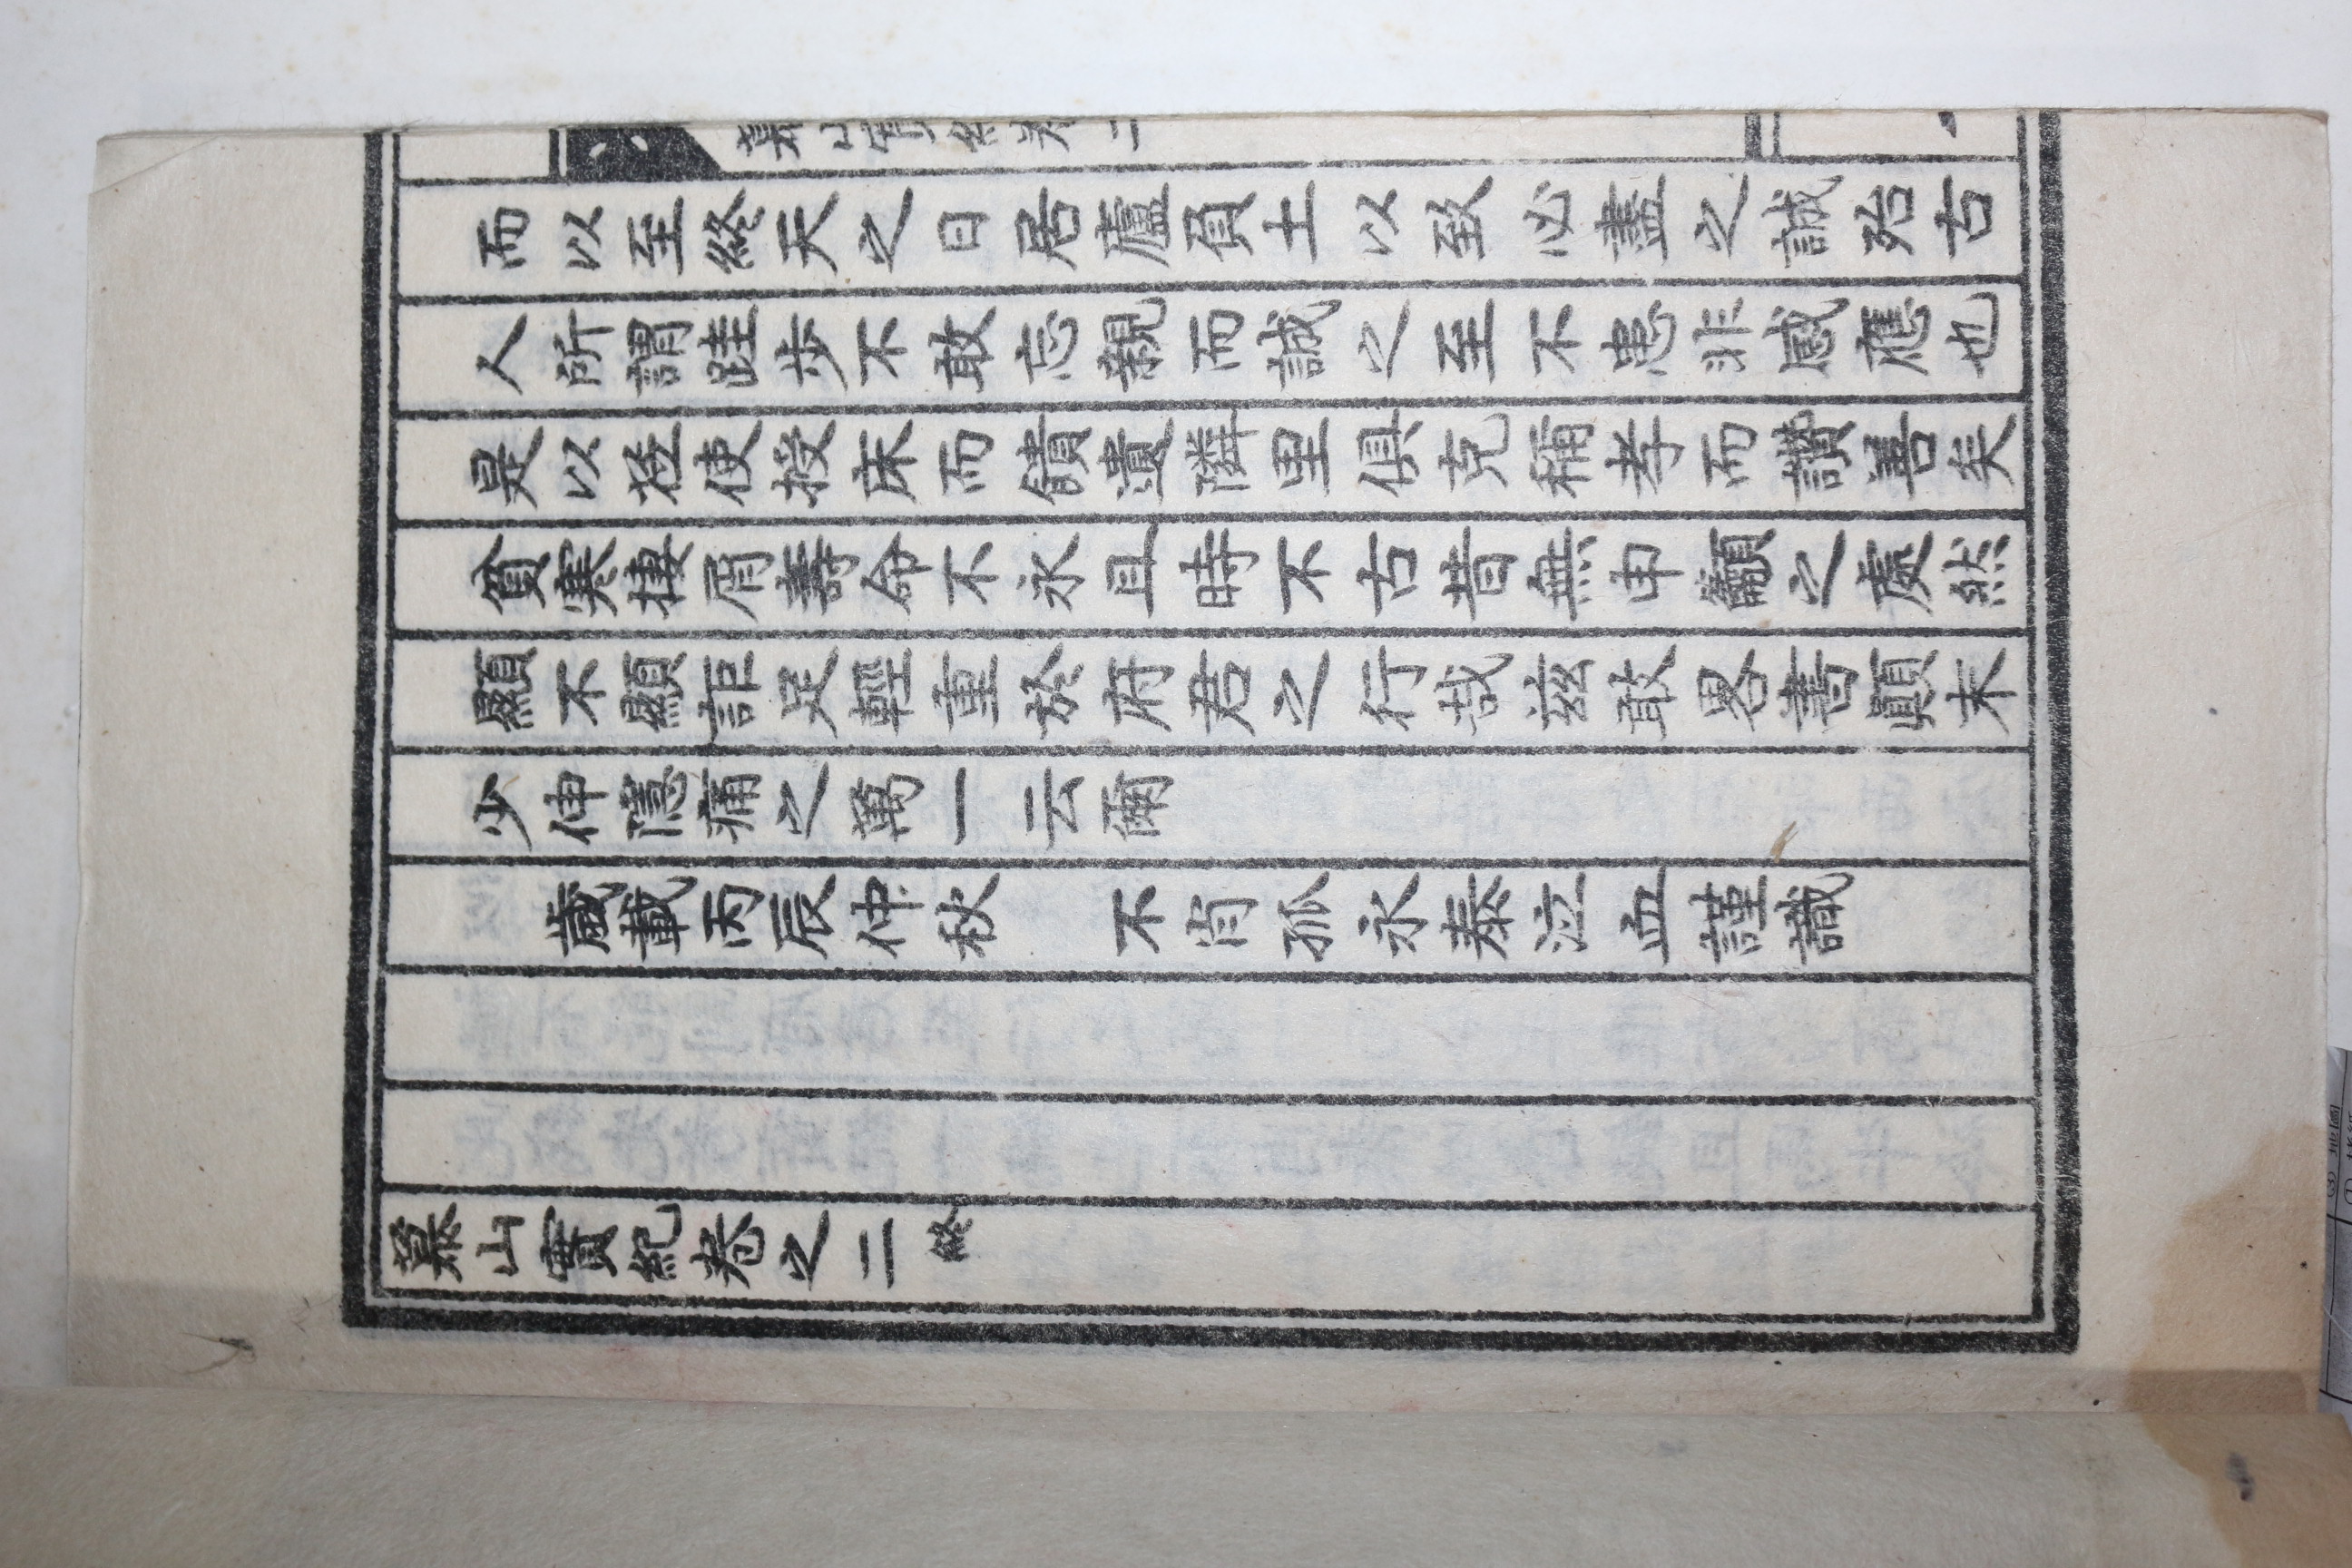 慕山實紀卷二
而以至終天之日居廬負土以致必盡之誠殆古
人所謂跬步不敢忘親而誠之至不患非感應也
是以莅使授床而饋遺隣里俱克稱孝而讚善矣
貧寒捿屑壽命不永且時不古昔無申籲之處然
顯不顯詎足輕重於府君之行哉玆敢畧書顚末
少伸隱痛之萬一云爾
歲載丙辰仲秋 不肖孤永泰泣血謹識
慕山實紀卷之二 終
地圖